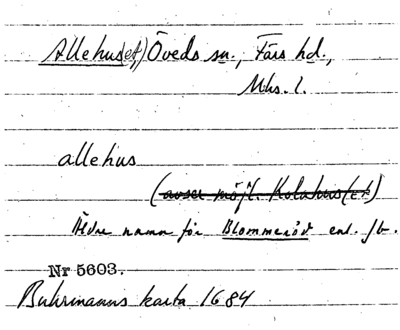 Allehus(et,) Öveds sn., Färs hd.,
Mhs. l.
allehus
(avser möjl. Kolahus(et))
Äldre namn för Blommeröd enl. jb.
Nr 5603.
Buhrmanns karta 1684